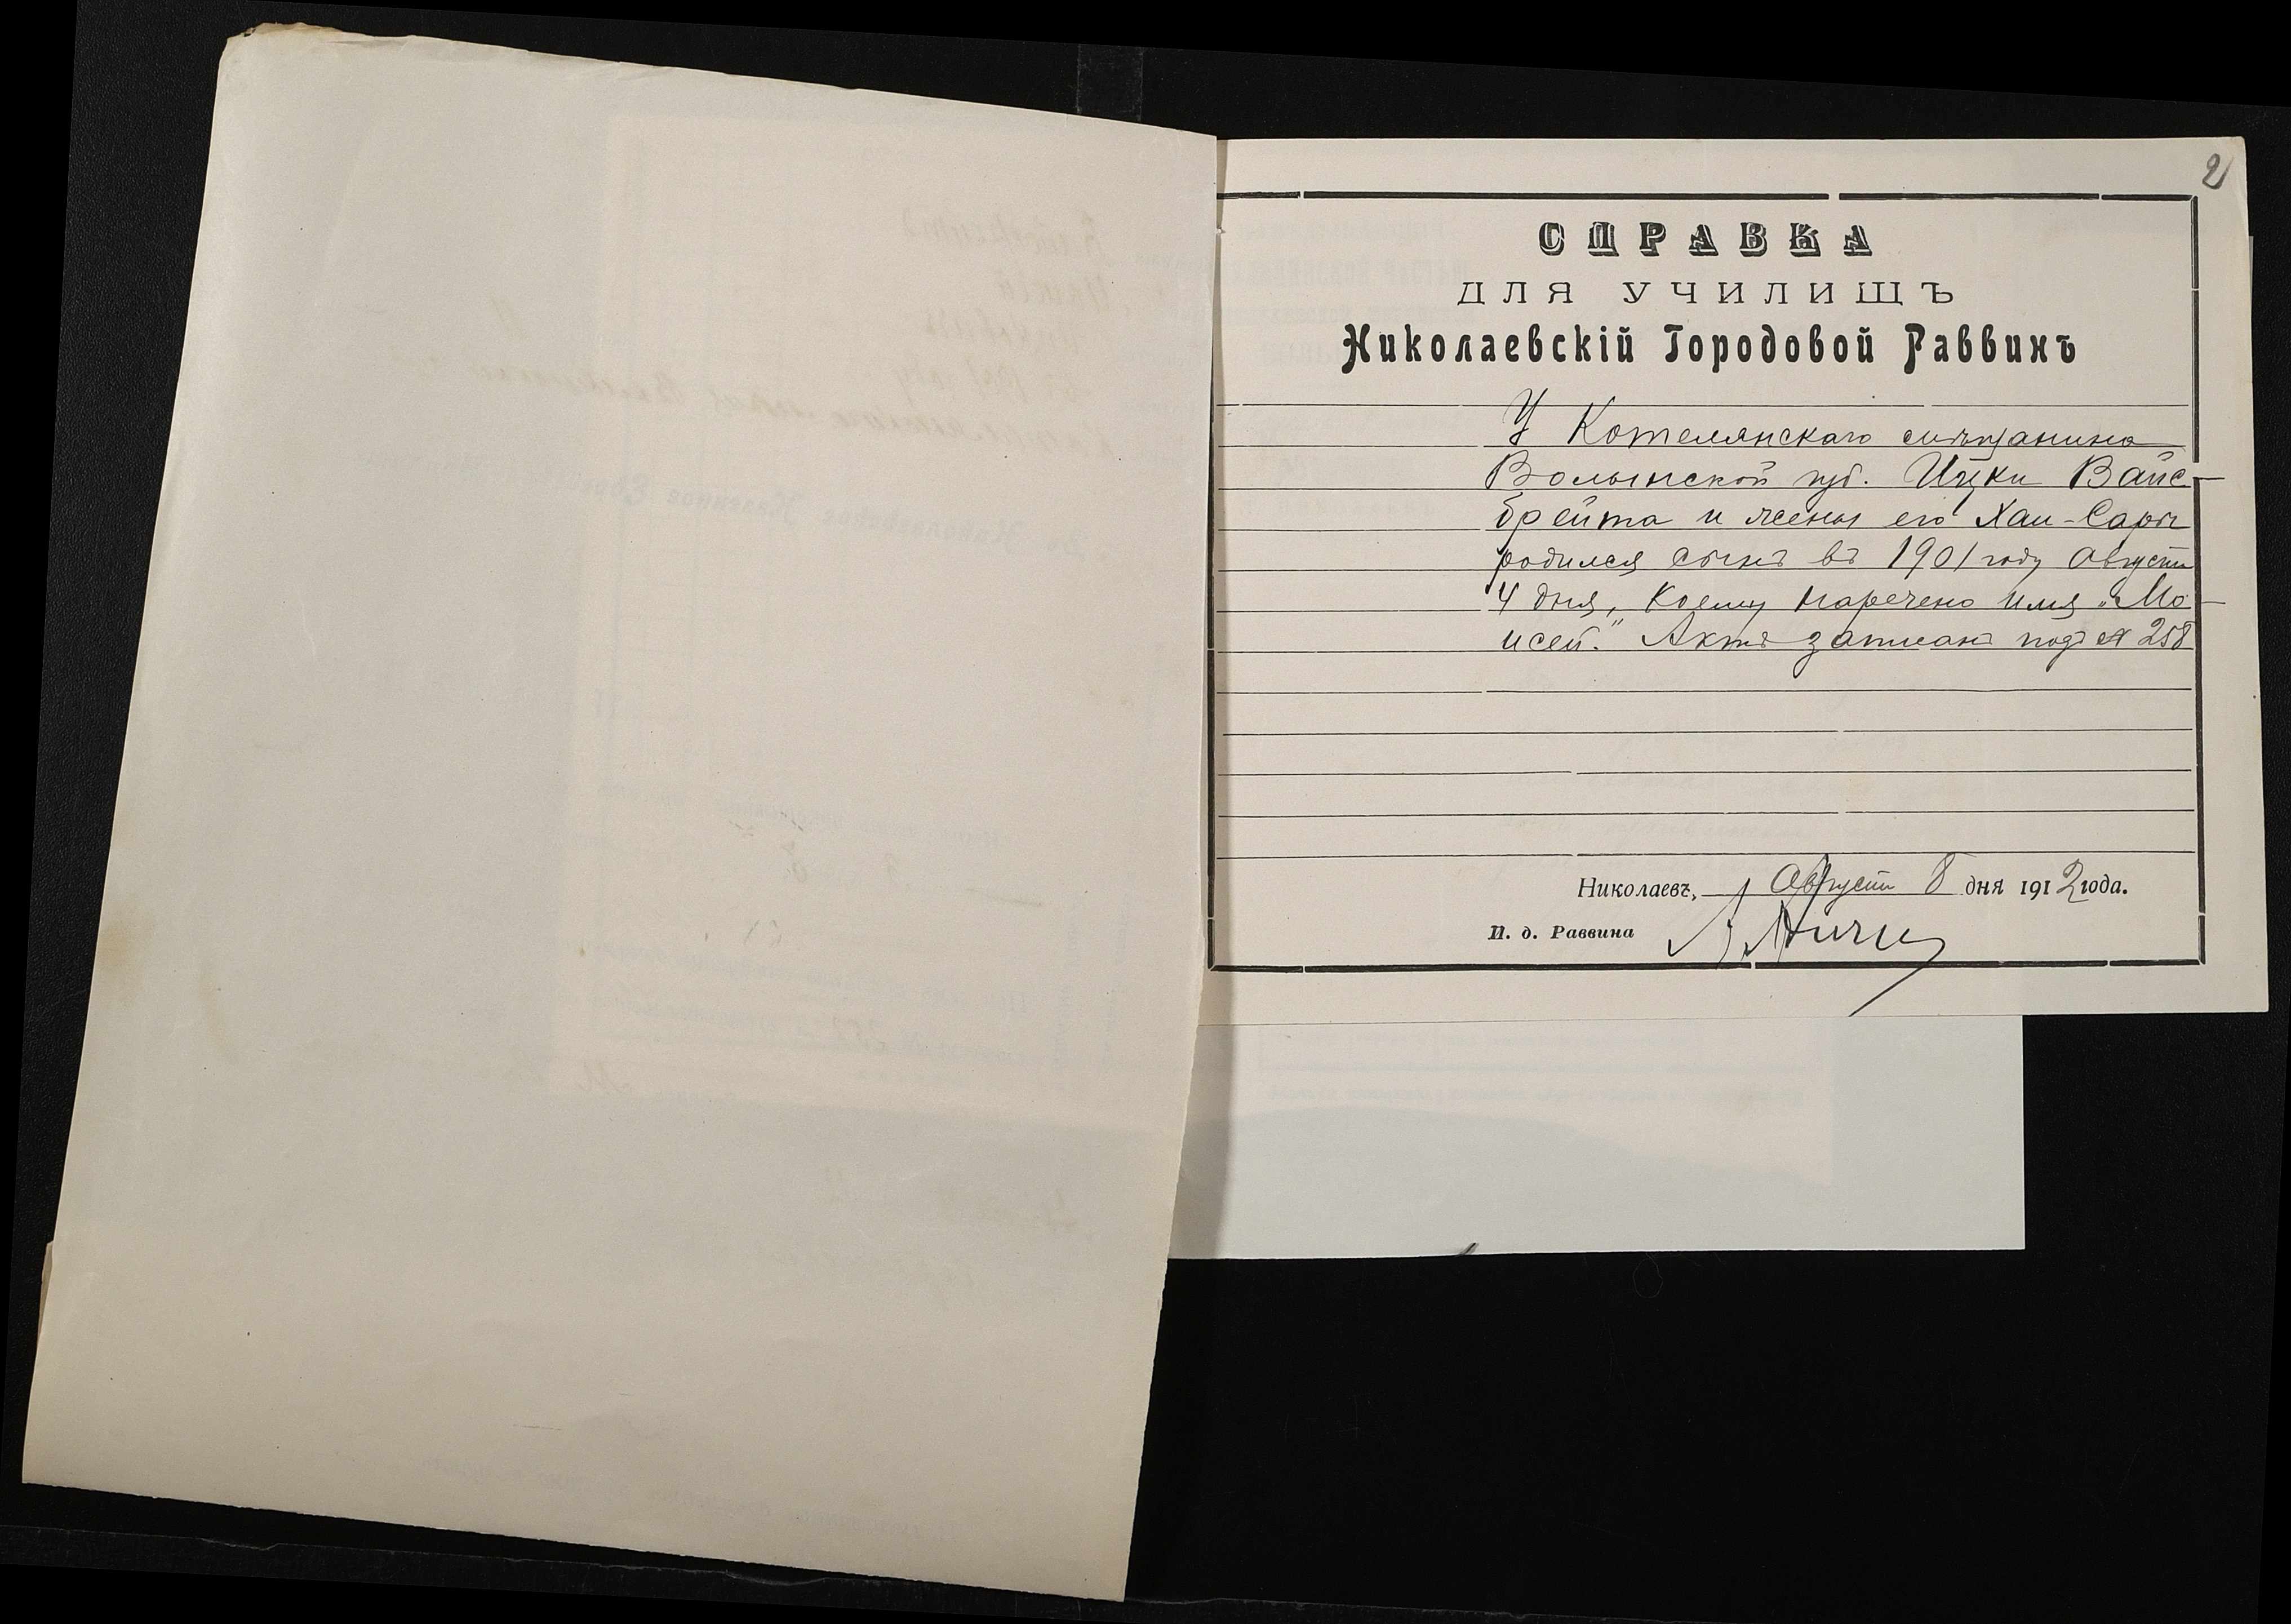 2
СПРАВКА
ДЛЯ УЧИЛИЩЪ
Николаевскій Городовой Раввинъ
У Котелянскаго мѣщанина
Волынской губ. Ицки Вайс-
брейта и жены его Хаи-Сары
родился сынъ въ 1901 году Августа
4 дня, коему наречено имя „Мо-
исей." Актъ записанъ подъ № 258
Николаевъ, Августа 8 дня 1912 года.
И. д. Раввина